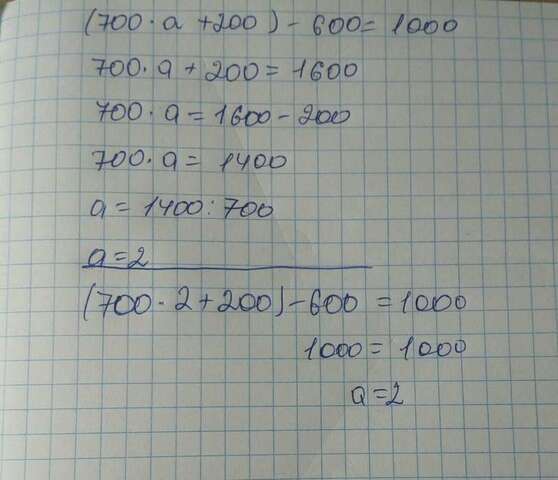 (700·a+200)-600=1000
700·a+200=1600
700·a=1600-200
700·a=1400
a=1400:700
a=2
(700·2+200)-600=1000
1000=1000
a=2